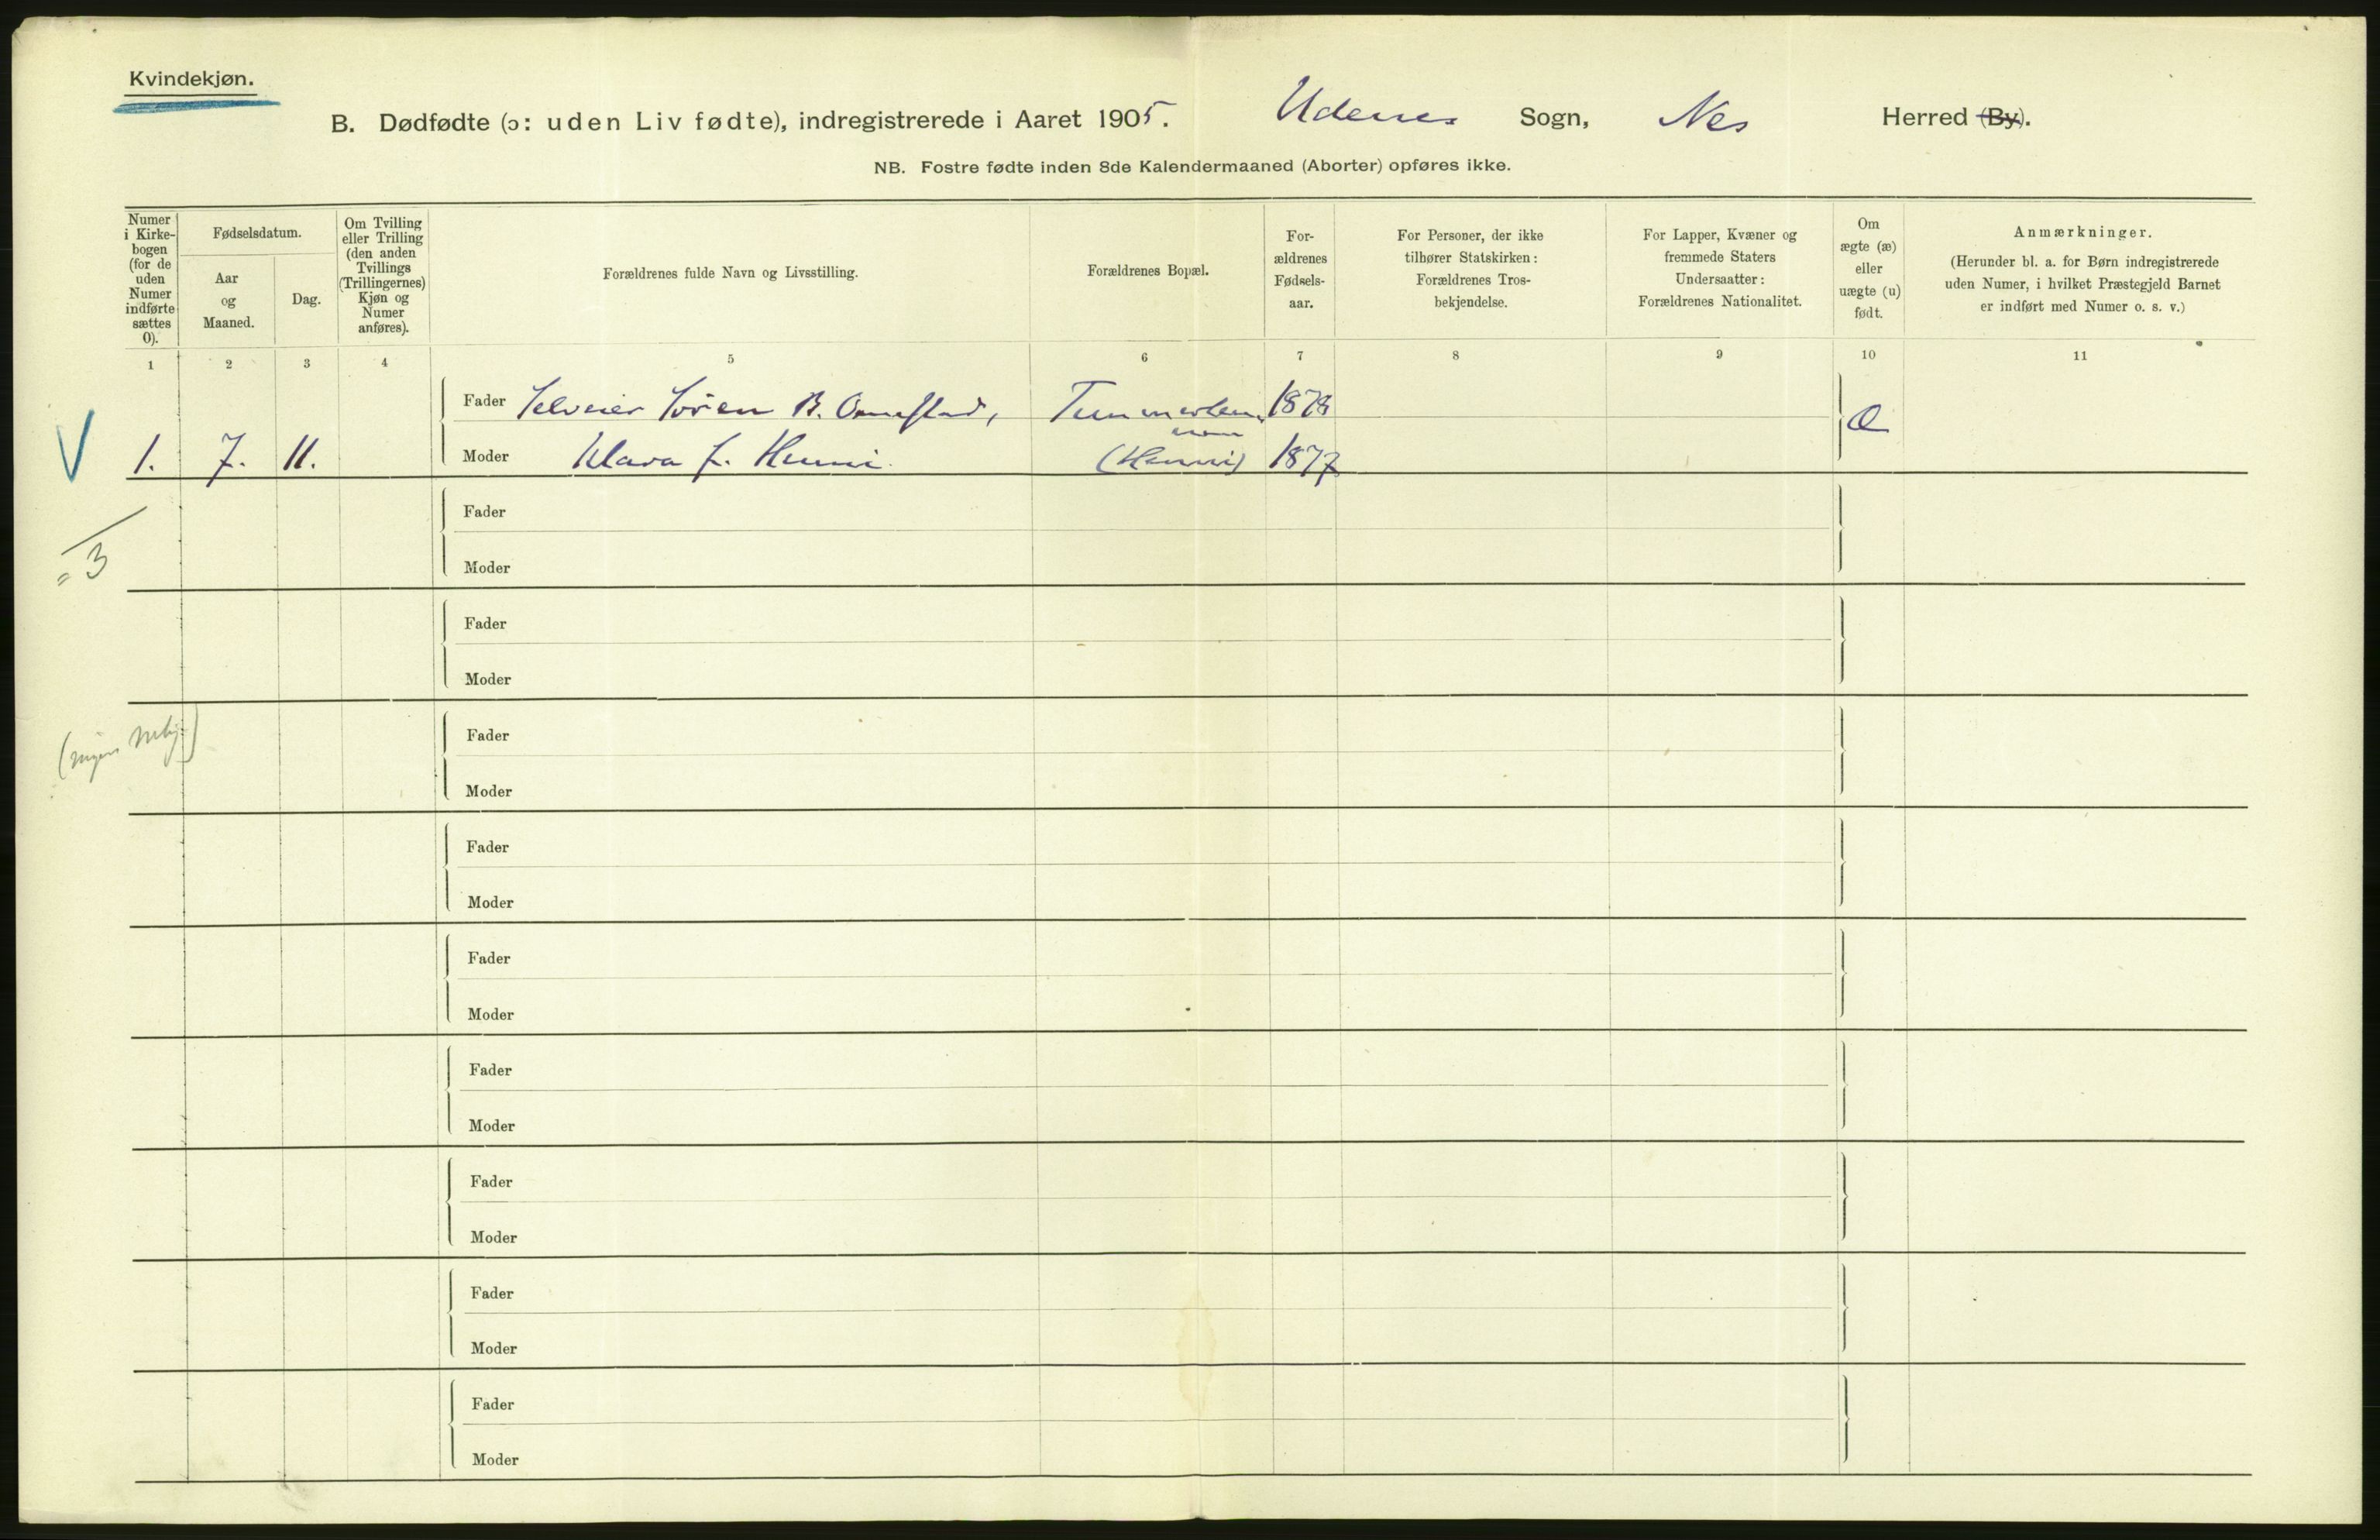 Kvindekjøn.
B. Dødfødte (ɔ: uden Liv fødte), indregistrerede i Aaret 1905. Udenes Sogn, Nes Herred (By).
NB. Fostre fødte inden 8de Kalendermaaned (Aborter) opføres ikke.
Numer i Kirke-
bogen
(for de
uden
Numer
indførte
sættes
0).
Fødselsdatum.
Aar
og
Maaned.
Dag.
Om Tvilling
eller Trilling
(den anden
Tvillings
(Trillingernes)
Kjøn og
Numer
anføres).
Forældrenes fulde Navn og Livsstilling.
Forældrenes Bopæl.
For-
ældrenes
Fødsels-
aar.
For Personer, der ikke
tilhører Statskirken:
Forældrenes Tros-
bekjendelse.
For Lapper, Kvæner og
fremmede Staters
Undersaatter:
Forældrenes Nationalitet.
Om
ægte (æ)
eller
uægte (u)
født.
Anmærkninger.
(Herunder bl. a. for Børn indregistrerede
uden Numer, i hvilket Præstegjeld Barnet
er indført med Numer o. s. v.)
1 2 3 4 5 6 7 8 9 10 11
Fader Selveier Søren B. 1878
Æ
V 1. 7. 11. Moder Klara 1877
Fader
= 3
Moder
Fader
Moder
Fader
Moder
Fader
Moder
Fader
Moder
Fader
Moder
Fader
Moder
Fader
Moder
Fader
Moder